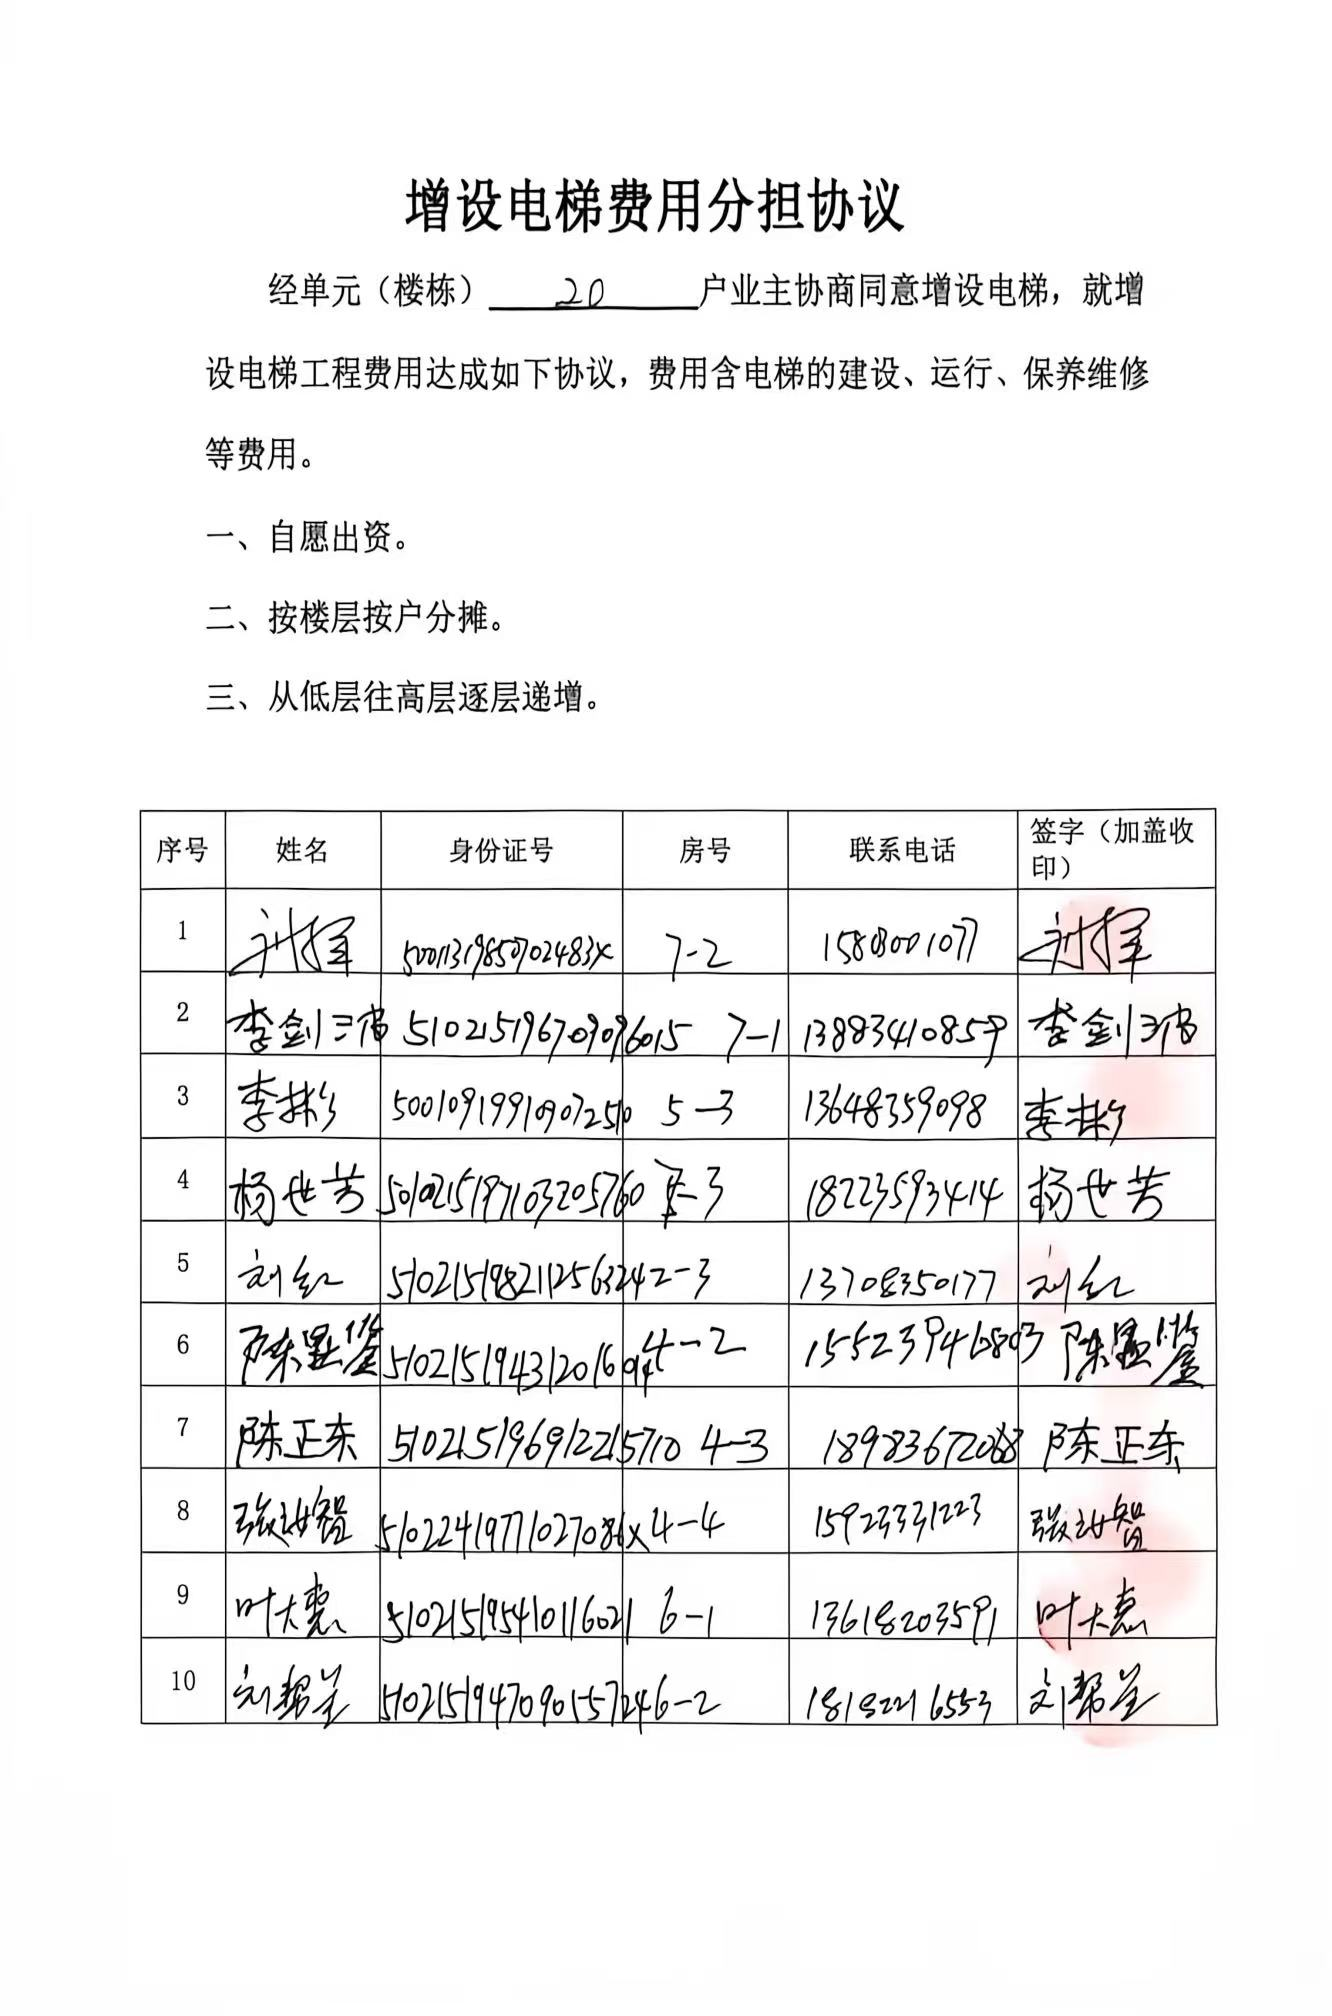 增设电梯费用分担协议
经单元（楼栋） 20 户业主协商同意增设电梯，就增
设电梯工程费用达成如下协议，费用含电梯的建设、运行、保养维修
等费用。
一、自愿出资。
二、按楼层按户分摊。
三、从低层往高层逐层递增。
序号 姓名 身份证号 房号 联系电话 签字（加盖收
印）
1 刘挥 50011319850702483X 7-2 15803001077 刘挥
2 李剑 510215196709096015 7-1 13883410859 李剑
3 李彬 500109199109072510 5-3 13648359098 李彬
4 杨世芳 -3 18223593414 杨世芳
5 刘红 510215198211256324 2-3 13708350177 刘红
6 陈 4-2 陈
7 陈正东 510215196912215710 4-3 陈正东
8 张 智 51022419771027086X 4-4 15923331223 张 智
9 叶大惠 510215195410116021 6-1 13618203591 叶大惠
10 刘帮 510215194709015724 6-2 18182216553 刘帮